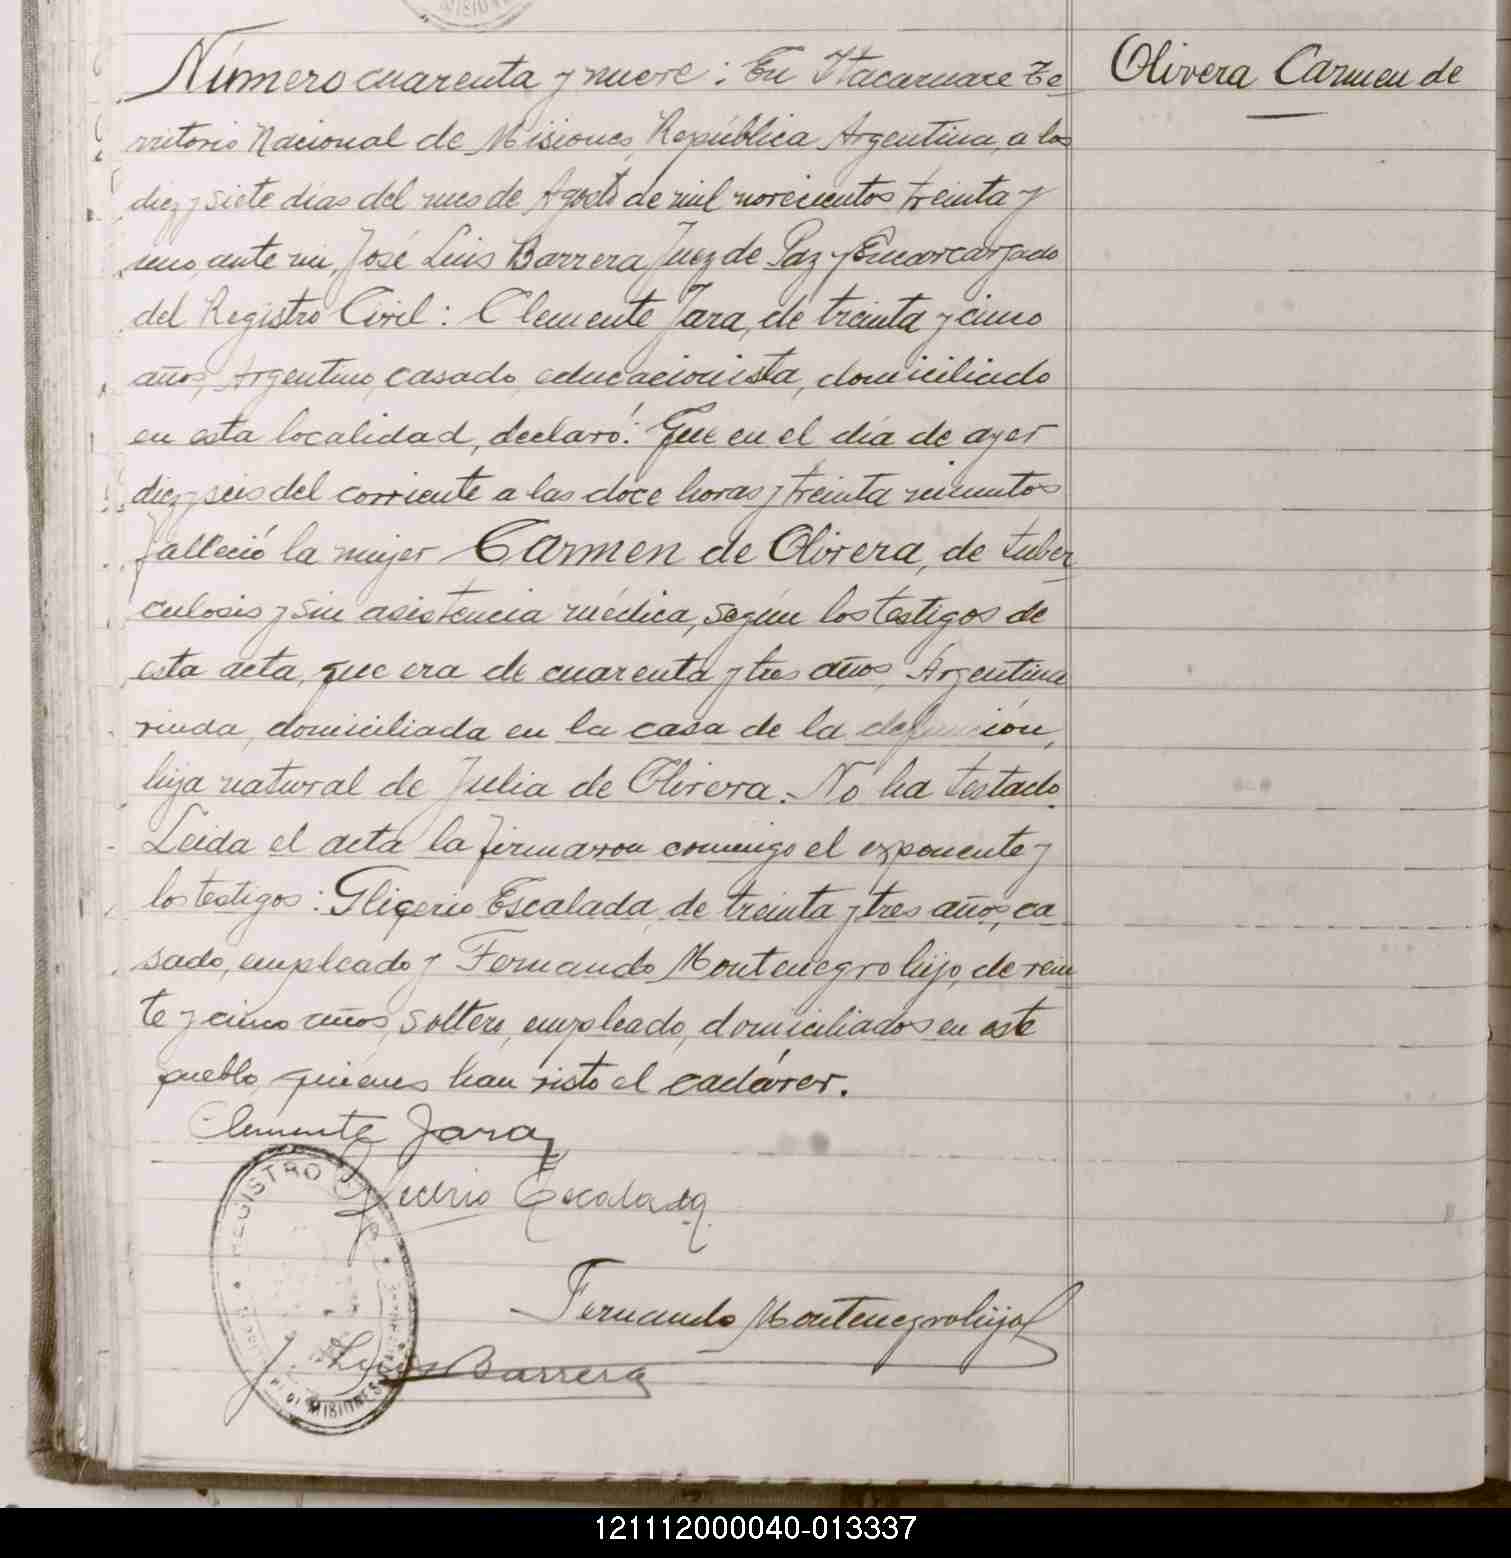 Número cuarenta y nueve: En Itacaruare Te-
rritorio Nacional de Misiones, República Argentina, a los
diez y siete dias del mes de Agosto de mil novecientos treinta y
uno, ante mi, José Luis Barrera Juez de Paz y Encarcargado
del Registro Civil: Clemente Jara, de treinta y cinco
años, Argentino, casado, educacionista, domiciliado
en esta localidad, declaró: Que en el día de ayer
diez y seis del corriente a las doce horas y treinta minutos
falleció la mujer Carmen de Olivera, de tuber-
culosis y sin asistencia médica, según los testigos de
esta acta, que era de cuarenta y tres años, Argentina
viuda, domiciliada en la casa de la defunción,
hija natural de Julia de Olivera. No ha testado.
Leida el acta la firmaron conmigo el exponente y
los testigos: Gliçerio Escalada, de treinta y tres años, ca-
sado, empleado y Fernando Montenegro hijo, de vein-
te y cinco años, soltero, empleado, domiciliados en este
pueblo, quiénes han visto el cadáver.
Clemente Jara
Escalada
Fernando Montenegro hijo
J. Luis Barrera
Olivera Carmen de
REGISTRO CIVIL
MISIONES
121112000040-013337